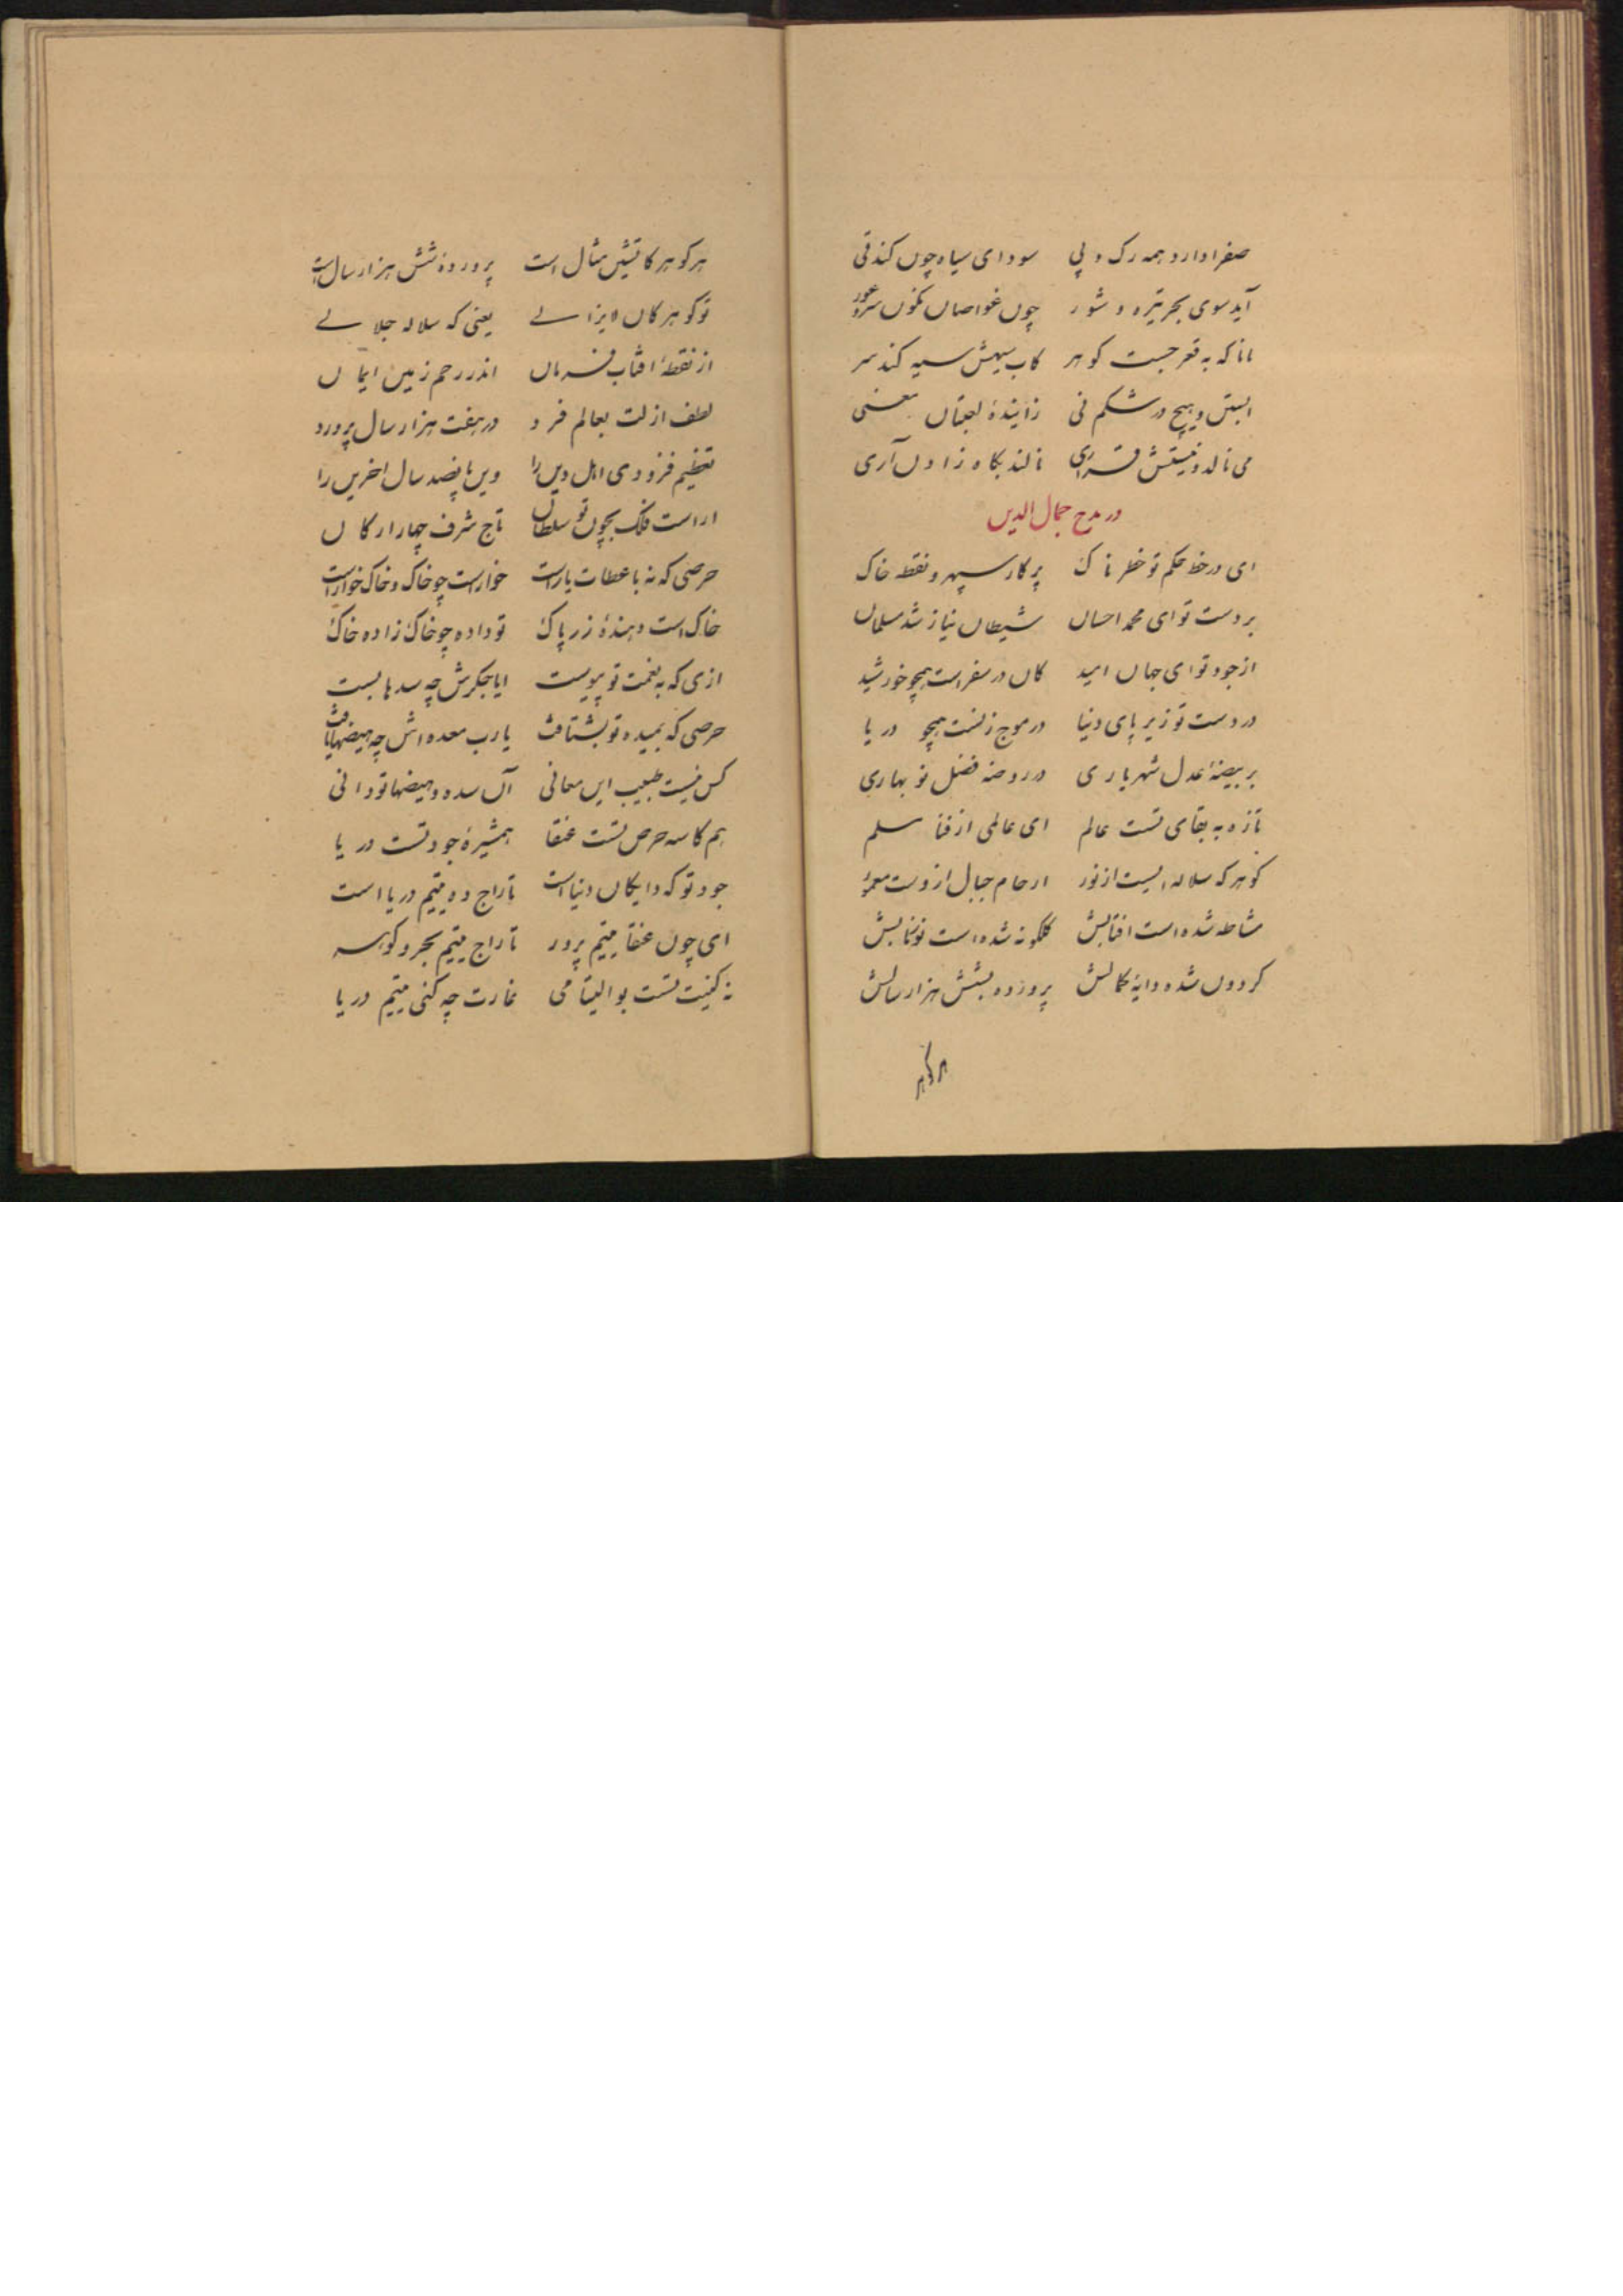 صفرا دارد همه رک و پی سودای سیاه چوں کند قی
آید سوی بحر تیره و شور چوں غواصاں نکوں سر و عور
مانا که به قعر جست کوهر کاب سیهش سیه کند سر
ابستن و هیچ در شکم نی زایندهٔ لعبتاں معنی
می نالد و نیستش قراری نالند بکاه زادں آری
در مدح جمال الدین
ای در خط حکم تو خطرناک پرکار سپهر و نقطه خاک
بر دست تو ای محمد احساں شیطاں نیاز شد مسلماں
از جود تو ای جهاں امید کاں در سفر است همچو خورشید
در دست تو زیر پای دنیا در موج زنست همچو دریا
بر بیضهٔ عدل شهریاری در روضه فضل نو بهاری
تازه به بقای تست عالم ای عالمی از فنا مسلم
کوهر که سلاله ایست از نور ارحام جبال ازوست معمور
مشاطه شده است افتابش کلکونه شده است نو نتابش
کردوں شده دایهٔ کمالش پرورده بشش هزار سالش
هر کوهر
هر کوهر کاتشیں مثال است پروردهٔ شش هزار سال است
تو کوهر کاں لایزالے یعنی که سلاله جلالے
از نقطهٔ افتاب فرماں اندر رحم زمین ایماں
لطف ازلت بعالم فرد در هفت هزار سال پرورد
تعظیم فزودی اهل دیں را ویں پانصد سال اخریں را
اراست فلک بچوں تو سلطاں تاج شرف چهار ارکاں
حرصی که نه با عطات یار است خوار است چو خاک و خاک خوار است
خاک است دهندهٔ زر پاک تو داده چو خاک زاده خاک
ازی که به نعمت تو پیوست ایا جکرش چه سدها بست
حرصی که بمیده تو بشتافت یا رب معده اش چه هیضها یافت
کس نیست طبیب ایں معانی آں سده و هیضها تو دانی
هم کاسه حرص تست عنقا همشیرهٔ جود تست دریا
جود تو که دایکاں دنیا است تاراج ده یتیم دریا است
ای چوں عنقا یتیم پرور تاراج یتیم بحر و کوهر
نه کنیت تست بوالیتامی غارت چه کنی یتیم دریا